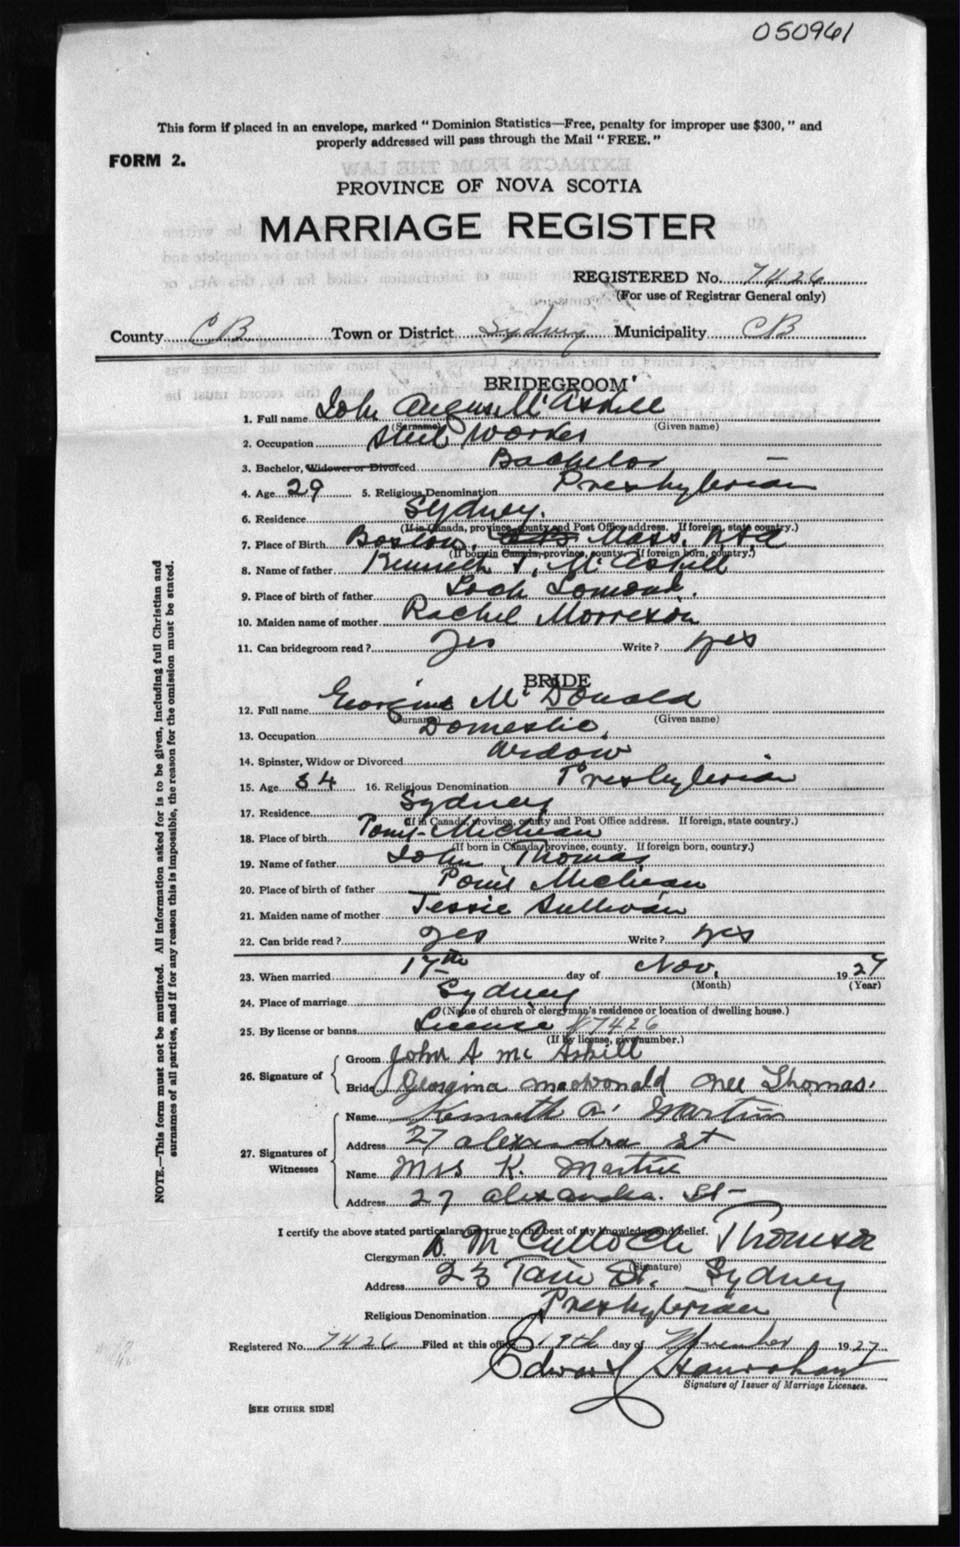 050961
This form if placed in an envelope, marked "Dominion Statistics—Free, penalty for improper use $300," and
properly addressed will pass through the Mail "FREE."
FORM 2.
PROVINCE OF NOVA SCOTIA
MARRIAGE REGISTER
REGISTERED No. 7426
(For use of Registrar General only)
County CB Town or District Sydney Municipality CB
BRIDEGROOM
1. Full name John Angus McAskill
(Surname) (Given name)
2. Occupation Steel Worker
3. Bachelor, Widower or Divorced Bachelor
4. Age 29 5. Religious Denomination Presbyterian
6. Residence Sydney.
(If in Canada, province, county and Post Office address. If foreign, state country.)
7. Place of Birth Boston, Mass.
(If born in Canada, province, county. If foreign born, country.)
8. Name of father Kenneth J. McAskill
9. Place of birth of father Loch Lomond.
10. Maiden name of mother Rachel Morrison
11. Can bridegroom read? Yes Write? Yes
BRIDE
12. Full name Georgina McDonald
(Surname) (Given name)
13. Occupation Domestic.
14. Spinster, Widow or Divorced Widow
15. Age 34 16. Religious Denomination Presbyterian
17. Residence Sydney
(If in Canada, province, county and Post Office address. If foreign, state country.)
18. Place of birth
(If born in Canada, province, county. If foreign born, country.)
19. Name of father John Thomas
20. Place of birth of father
21. Maiden name of mother Jessie Sullivan
22. Can bride read? Yes Write? Yes
23. When married 17th day of Nov. 1927
(Month) (Year)
24. Place of marriage Sydney
(Name of church or clergyman's residence or location of dwelling house.)
25. By license or banns License #7426
(If by license, give number.)
26. Signature of Groom John A McAskill
Bride Georgina MacDonald nee Thomas.
27. Signatures of Witnesses Name Kenneth A. Martin
Address 27 Alexandra St
Name Mrs K. Martin
Address 27 Alexandra. St-
I certify the above stated particulars are true to the best of my knowledge and belief.
Clergyman D. McCulloch Thomson
(Signature)
Address 23 St. Sydney
Religious Denomination Presbyterian
Registered No. 7426 Filed at this office 19th day of November 1927
Edward
Signature of Issuer of Marriage Licenses.
[SEE OTHER SIDE]
NOTE.—This form must not be mutilated. All information asked for is to be given, including full Christian and
surnames of all parties, and if for any reason this is impossible, the reason for the omission must be stated.